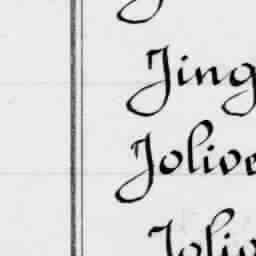 Jing
Jolive
Joliv